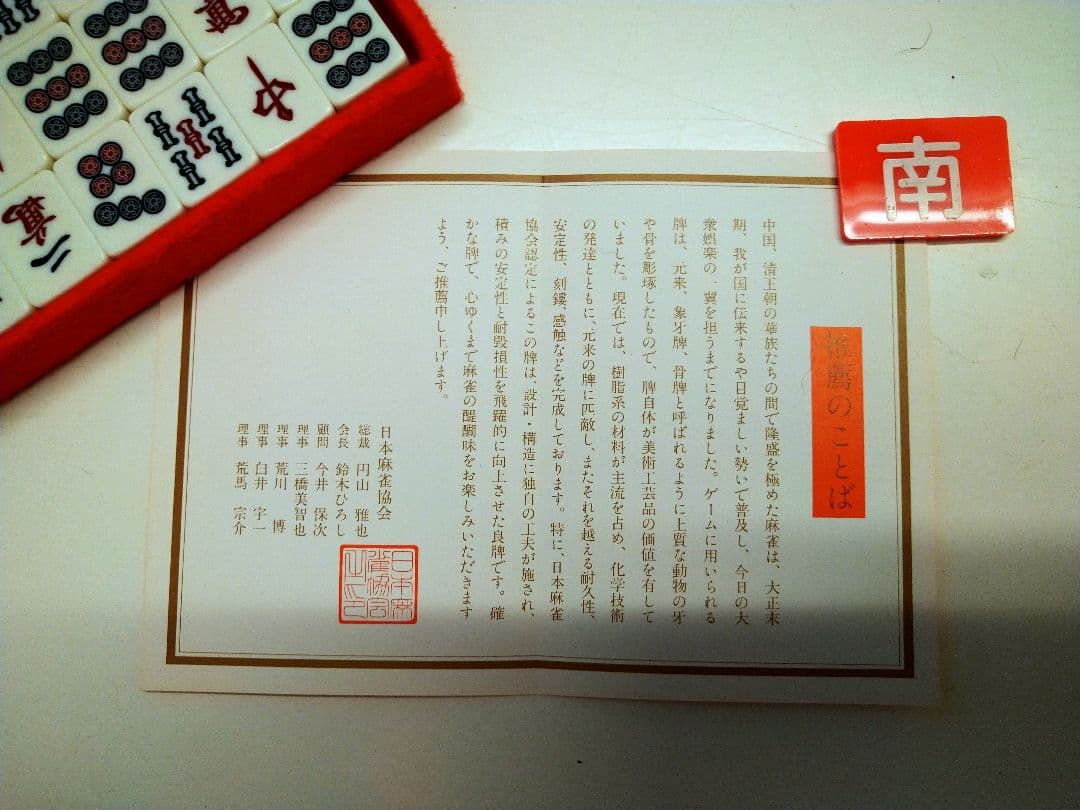 南
推薦のことば
中国、清王朝の華族たちの間で隆盛を極めた麻雀は、大正末
期、我が国に伝来するや目覚ましい勢いで普及し、今日の大
衆娯楽の一翼を担うまでになりました。ゲームに用いられる
牌は、元来、象牙牌、骨牌と呼ばれるように上質な動物の牙
や骨を彫琢したもので、牌自体が美術工芸品の価値を有して
いました。現在では、樹脂系の材料が主流を占め、化学技術
の発達とともに、元来の牌に匹敵し、またそれを越える耐久性、
安定性、刻鏤、感触などを完成しております。特に、日本麻雀
協会認定によるこの牌は、設計・構造に独自の工夫が施され、
積みの安定性と耐毀損性を飛躍的に向上させた良牌です。確
かな牌で、心ゆくまで麻雀の醍醐味をお楽しみいただきます
よう、ご推薦申し上げます。
日本麻雀協会
総裁 円山 雅也
会長 鈴木ひろし
顧問 今井 保次
理事 三橋美智也
理事 荒川 博
理事 白井 宇一
理事 荒馬 宗介
日本麻
雀協会
之印
萬
中
萬
二